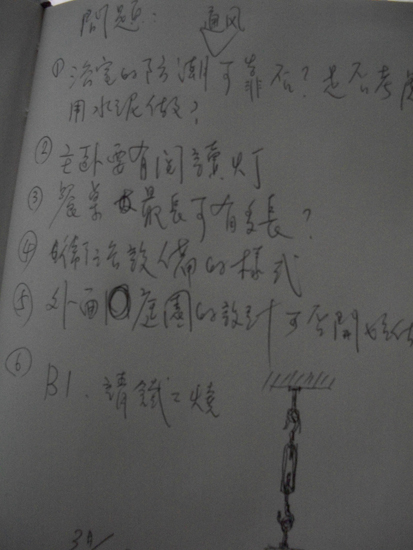 問題: 通风
① 浴室的防潮可靠否? 是否考慮
用水泥做?
② 主卧要有閱讀灯
③ 餐桌最長可有多長?
④ 設備的樣式
⑤ 外面庭園的設計可否開始做
⑥ B1. 請鐵工燒